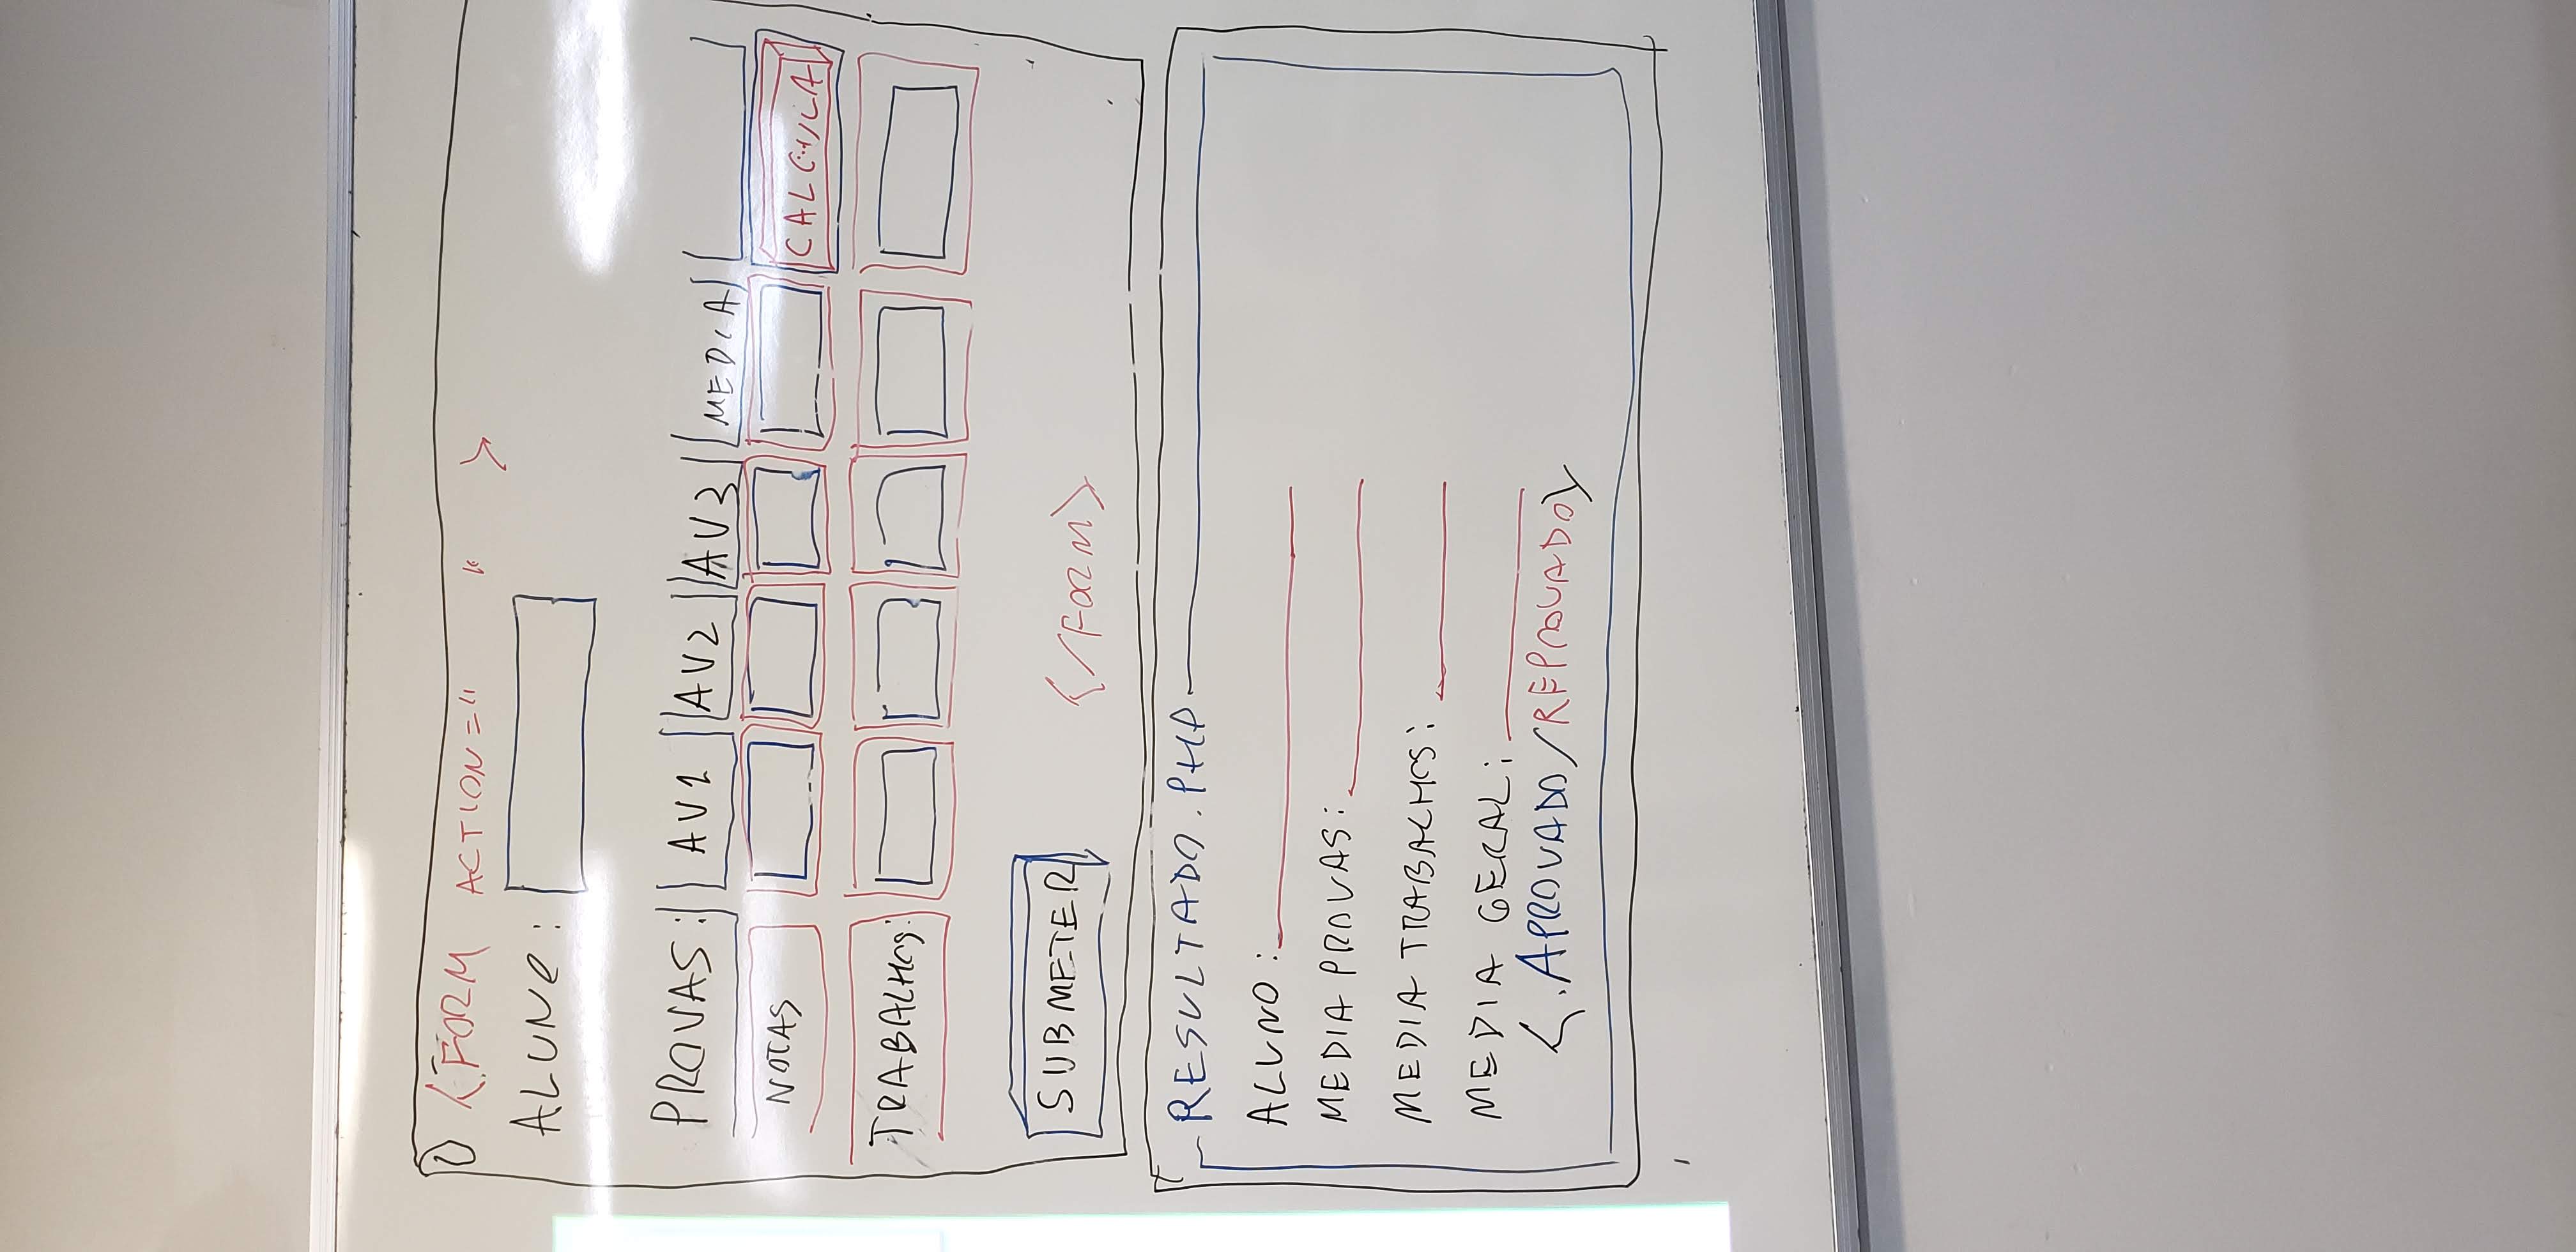 <FORM ACTION=" " >
ALUNO:
PROVAS: AV1 AV2 AV3 MEDIA
NOTAS CALCULA
TRABALHOS:
SUBMETER </FORM>
RESULTADO.PHP
ALUNO:
MEDIA PROVAS:
MEDIA TRABALHOS:
MEDIA GERAL:
<.APROVADO/REPROVADO>